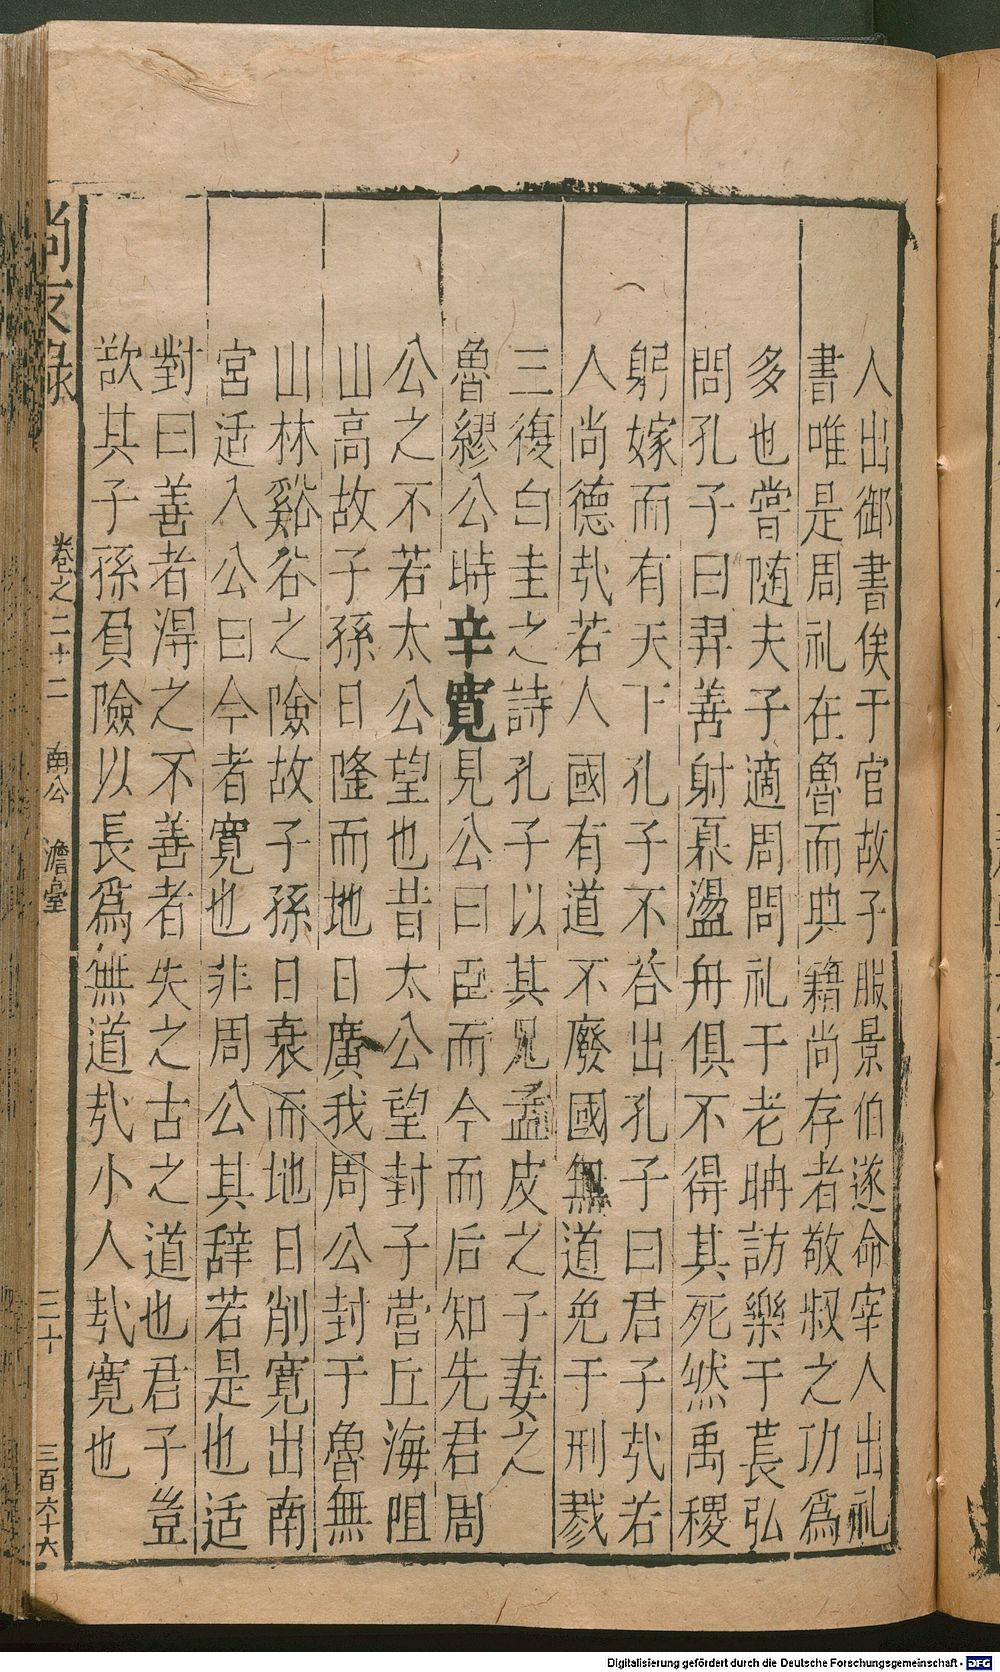 人出御書俟于官故子服景伯遂命宰人出礼
書唯是周礼在魯而典籍尚存者敬叔之功爲
多也嘗随夫子適周問礼于老聃訪樂于萇弘
問孔子曰羿善射奡盪舟俱不得其死然禹稷
躬嫁而有天下孔子不荅出孔子曰君子㢤若
人尚德㢤若人國有道不廢國無道免于刑戮
三復白圭之詩孔子以其兄孟皮之子妻之
魯繆公時辛寛見公曰臣而今而后知先君周
公之不若太公望也昔太公望封于营丘海阻
山高故子孫日隆而地日廣我周公封于魯無
山林谿谷之險故子孫日衰而地日削寛出南
宮适入公曰今者寛也非周公其辞若是也适
對曰善者淂之不善者失之古之道也君子豈
欲其子孫負險以長爲無道㢤小人㢤寛也
尚友録
卷之二十二
南公
澹臺
三十
三百六十六
Digitalisierung gefördert durch die Deutsche Forschungsgemeinschaft - DFG